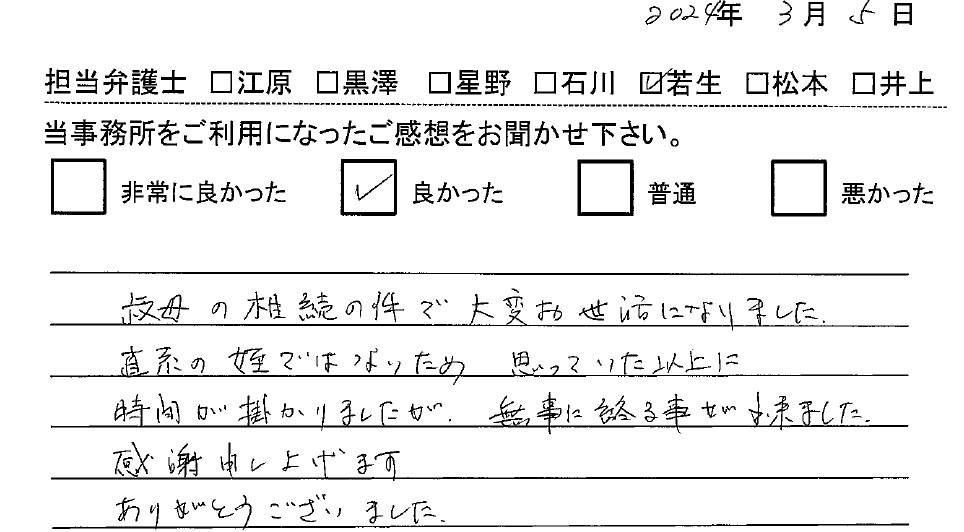 2024年 3月 5日
担当弁護士 □江原 □黒澤 □星野 □石川 ☑若生 □松本 □井上
当事務所をご利用になったご感想をお聞かせ下さい。
□ 非常に良かった ☑ 良かった □ 普通 □ 悪かった
叔母の相続の件で大変お世話になりました.
直系の姪ではないため 思っていた以上に
時間が掛かりましたが. 無事に終る事が出来ました.
感謝申し上げます
ありがとうございました.